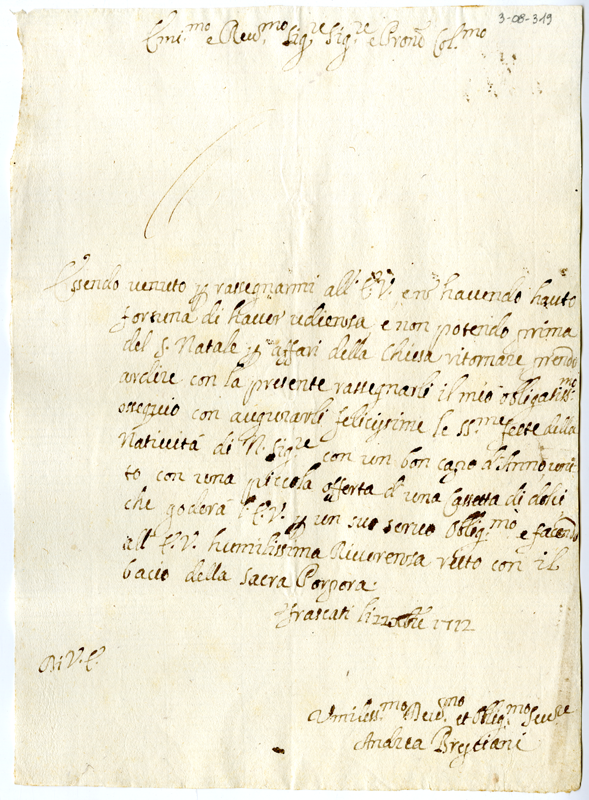 3-08-319
Emi.mo e Reud.mo Sig.re Sig.re e Prone Col.mo
Essendo venuto p rassegnarmi all'E.V. e nō havendo hauto
fortuna di haver udiensa e non potendo prima
del S. Natale p affari della Chiesa ritornare prendo
ardire con la presente rassegnarli il mio obligatiss.mo
ossequio con augurarli felicissime le SS.me feste della
Natività di N. Sig.re con un bon capo d'Anno unit
to con una piccola offerta d'una Casetta di dolci
che goderà l'E.V. p un suo servo Oblig.mo e facendo
all'E.V. humilissima Riverensa resto con il
bacio della Sacra Porpora.
Frascati li 22 Xbre 1712
Di V.E.
Umiliss.mo Deud.mo et Oblig.mo Seu.re
Andrea